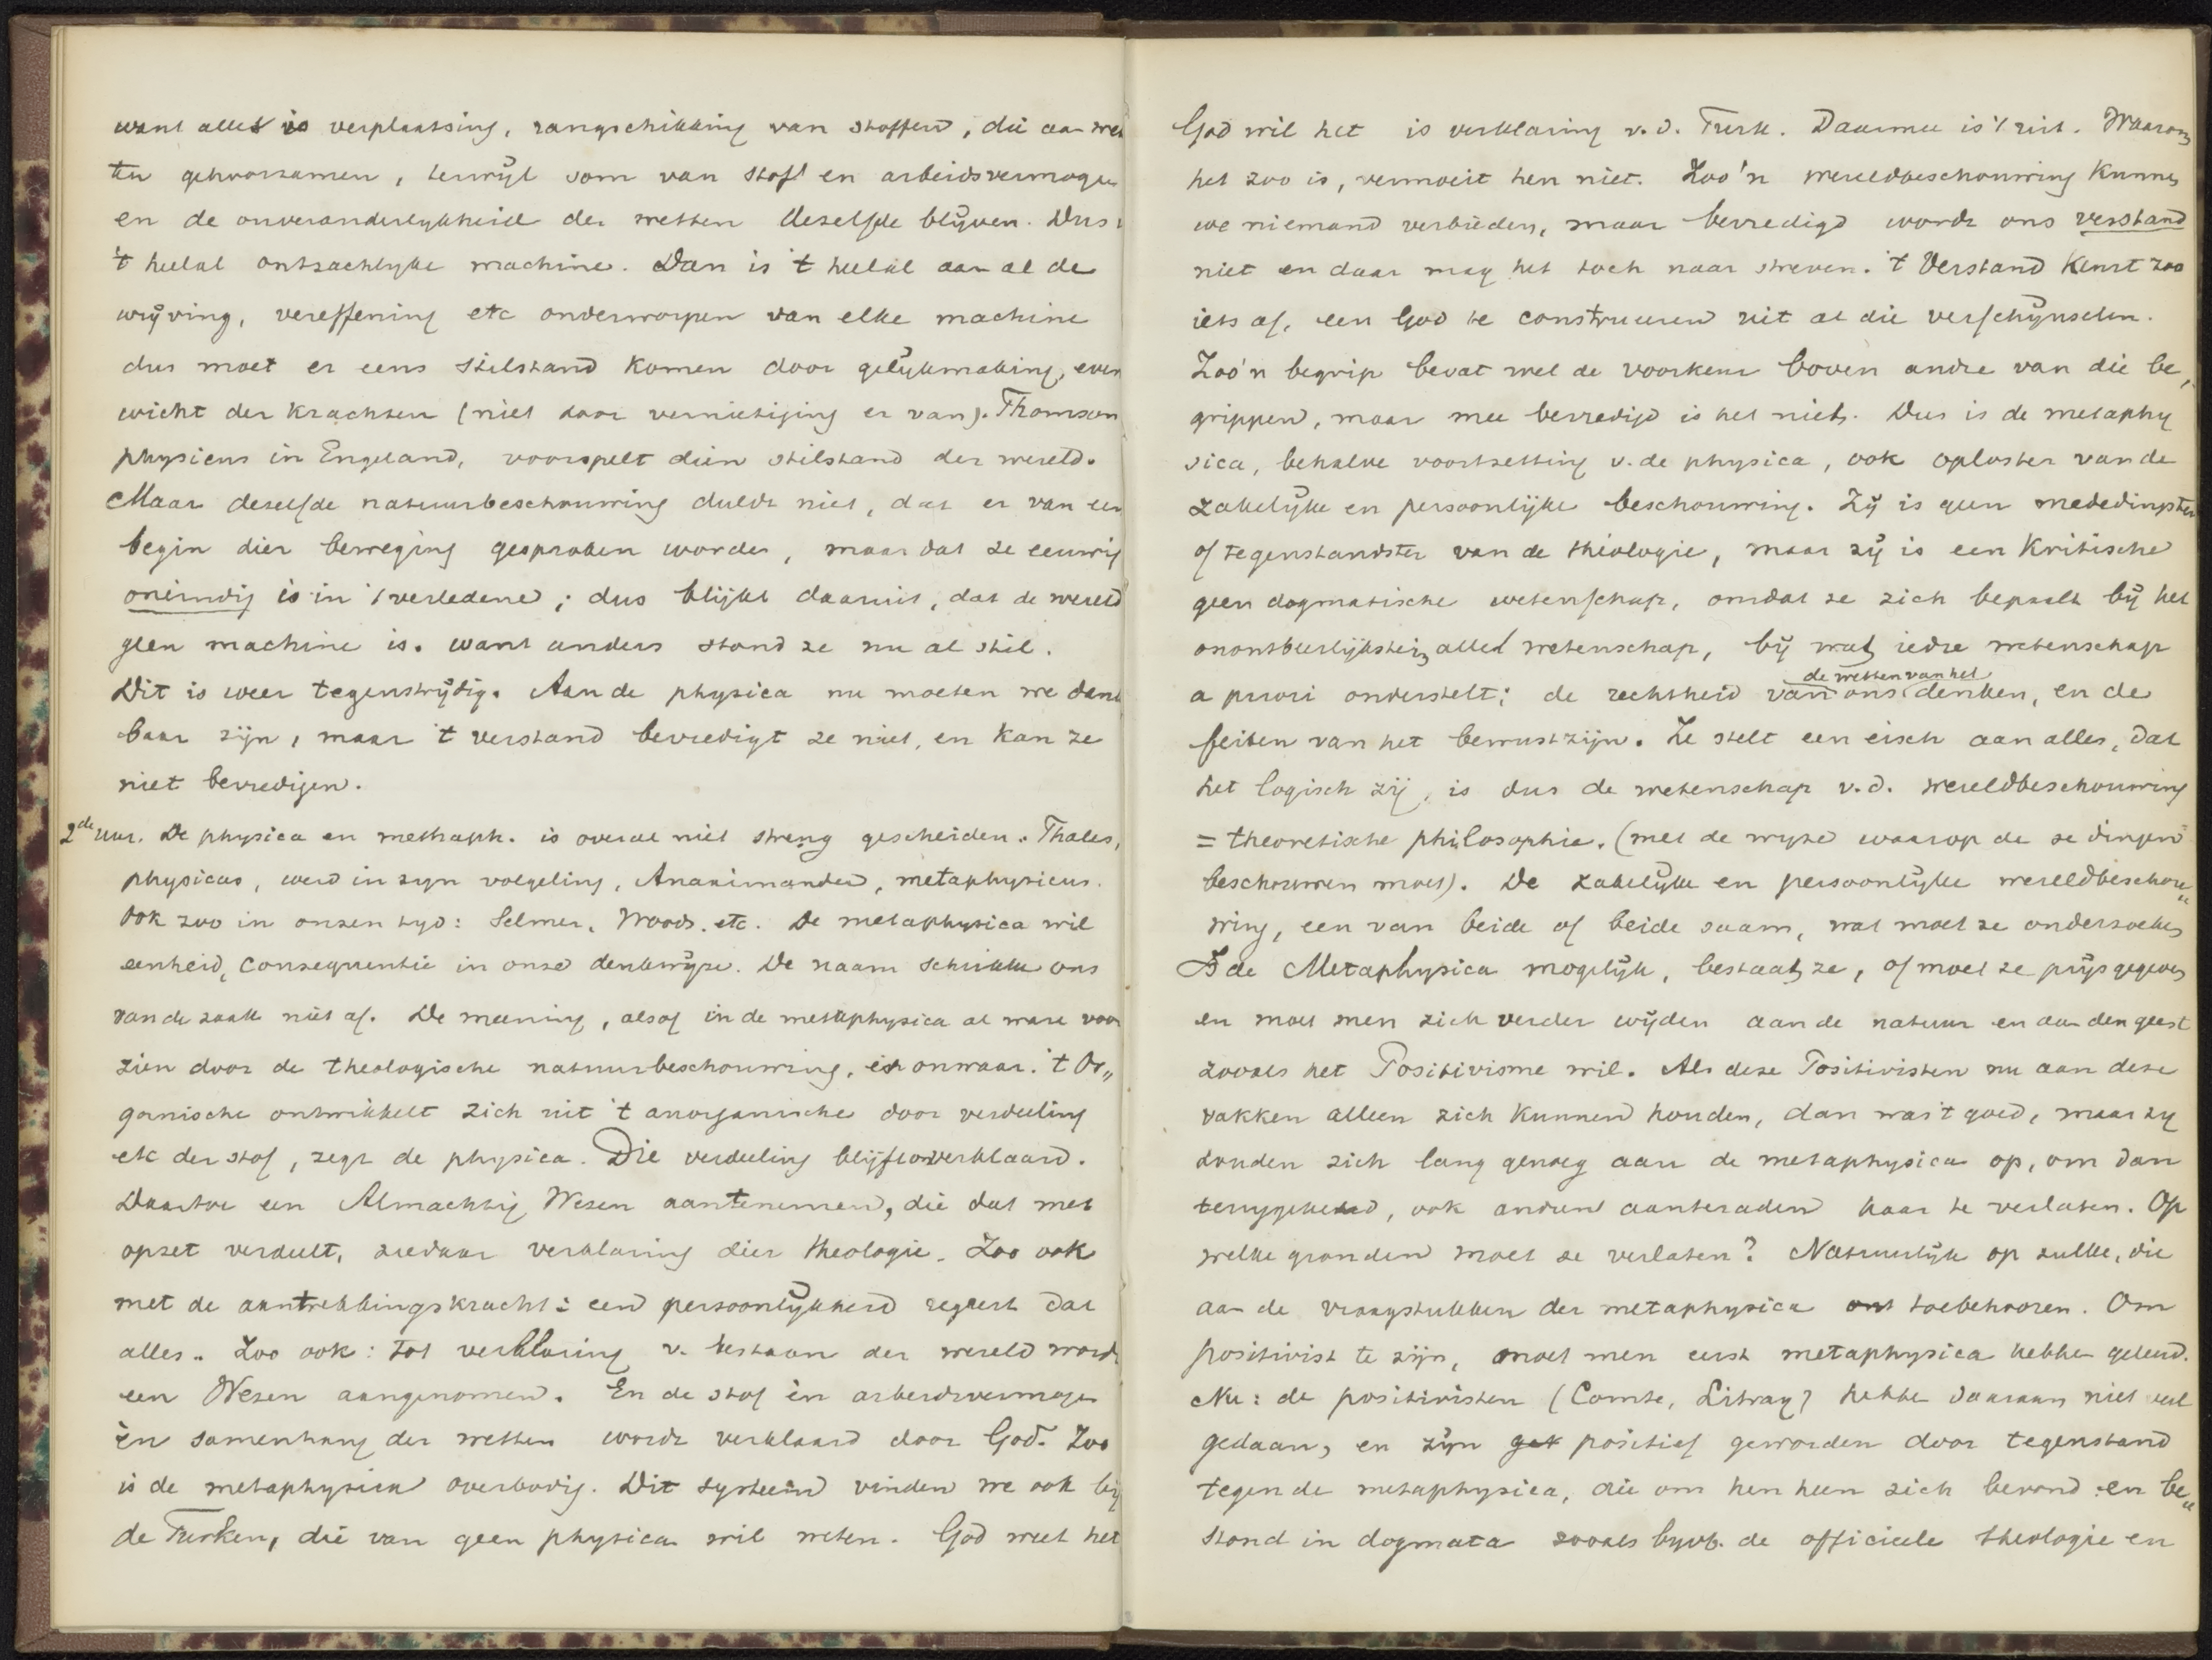 want alles is verplaatsing, rangschikking van stoffen, die aan wet
ten gehoorzamen, terwijl som van stof en arbeidsvermogen
en de onveranderlijkheid der wetten dezelfde blijven. Dus
't heelal ontzachlyke machine. Dan is 't heelal aan al de
wrijving, vereffening etc onderworpen van elke machine
dus moet er eens stilstand komen door gelijkmaking, even
wicht der krachten (niet door vernietiging er van). Thomson
physicus in Engeland, voorspelt dien stilstand der wereld.
Maar dezelfde natuurbeschouwing duldt niet, dat er van een
begin dier beweging gesproken worden, maar dat ze eeuwig
oneindig is in 't verledene; dus blijkt daaruit, dat de wereld
geen machine is. want anders stond ze nu al stil.
Dit is weer tegenstrijdig. Aan de physica nu moeten we dank
baar zijn, maar 't verstand bevredigt ze niet, en kan ze
niet bevredigen.
2de uur. De physica en methaph. is overal niet streng gescheiden. Thales,
physicus, werd in zyn volgeling, Anaximander, metaphysicus.
Ook zoo in onzen tyd: Selmer, Woods. etc. De metaphysica wil
eenheid, consequentie in onze denkwijze. De naam schrikke ons
van de zaak niet af. De meening, alsof in de metaphysica al ware voor
zien door de theologische natuurbeschouwing, is onwaar. 't Or„
ganische ontwikkelt zich uit 't anorganische door verdeeling
etc der stof, zegt de physica. Die verdeeling blijft onverklaard.
Daartoe een Almachtig Wezen aantenemen, die dat met
opzet verdeelt, ziedaar verklaring dier theologie. Zoo ook
met de aantrekkingskracht: een persoonlijkheid regeert dat
alles. Zoo ook: tot verklaring v. bestaan der wereld wordt
een Wezen aangenomen. En de stof èn arbeidsvermogen
èn samenhang der wetten wordt verklaard door God. Zoo
is de metaphysica overbodig. Dit systeem vinden we ook bij
de Turken, die van geen physica wil weten. God weet het
God wil het is verklaring v. d. Turk. Daarmee is 't uit. Waarom
het zoo is, vermoeit hen niet. Zoo'n wereldbeschouwing kunnen
we niemand verbieden, maar bevredigd wordt ons verstand
niet en daar mag het toch naar streven. 't Verstand keurt zoo
iets af, een God te construeeren uit al die verschijnselen.
Zoo'n begrip bevat wel de voorkeur boven andre van die be„
grippen, maar mee bevredigd is het niet. Dus is de metaphy
sica, behalve voortzetting v. de physica, ook oplosster van de
zakelijke en persoonlijke beschouwing. Zij is geen mededingster
of tegenstandster van de theologie, maar zij is een kritische
geen dogmatische wetenschap, omdat ze zich bepaalt bij het
onontbeerlijkste in alle wetenschap, bij wat iedre wetenschap
a priori onderstelt: de rechtheid van de wetten van het ons denken, en de
feiten van het bewustzijn. Ze stelt een eisch aan alles, dat
het logisch zij, is dus de wetenschap v. d. wereldbeschouwing
= theoretische philosophie. (met de wyze waarop de ze dingen
beschouwen moet). De zakelijke en persoonlijke wereldbeschou„
wing, een van beide of beide saam, wat moet ze onderzoeken
Is de Metaphysica mogelijk, bestaat ze, of moet ze prijsgegeven
en moet men zich verder wijden aan de natuur en aan den geest
zooals het Positivisme wil. Als deze Positivisten nu aan deze
vakken alleen zich kunnen houden, dan was 't goed, maar zy
houden zich lang genoeg aan de metaphysica op, om dan
terugkeerend, ook andren aanteraden haar te verlaten. Op
welke gronden moet ze verlaten? Natuurlijk op zulke, die
aan de vraagstukken der metaphysica toebehooren. Om
positivist te zijn, moet men eerst metaphysica hebben geleerd.
Nu: de positivisten (Comte, Litray) hebben daaraan niet veel
gedaan, en zijn positief geworden door tegenstand
tegen de metaphysica, die om hen heen zich bevond en be„
stond in dogmata zooals byvb. de officieele theologie en